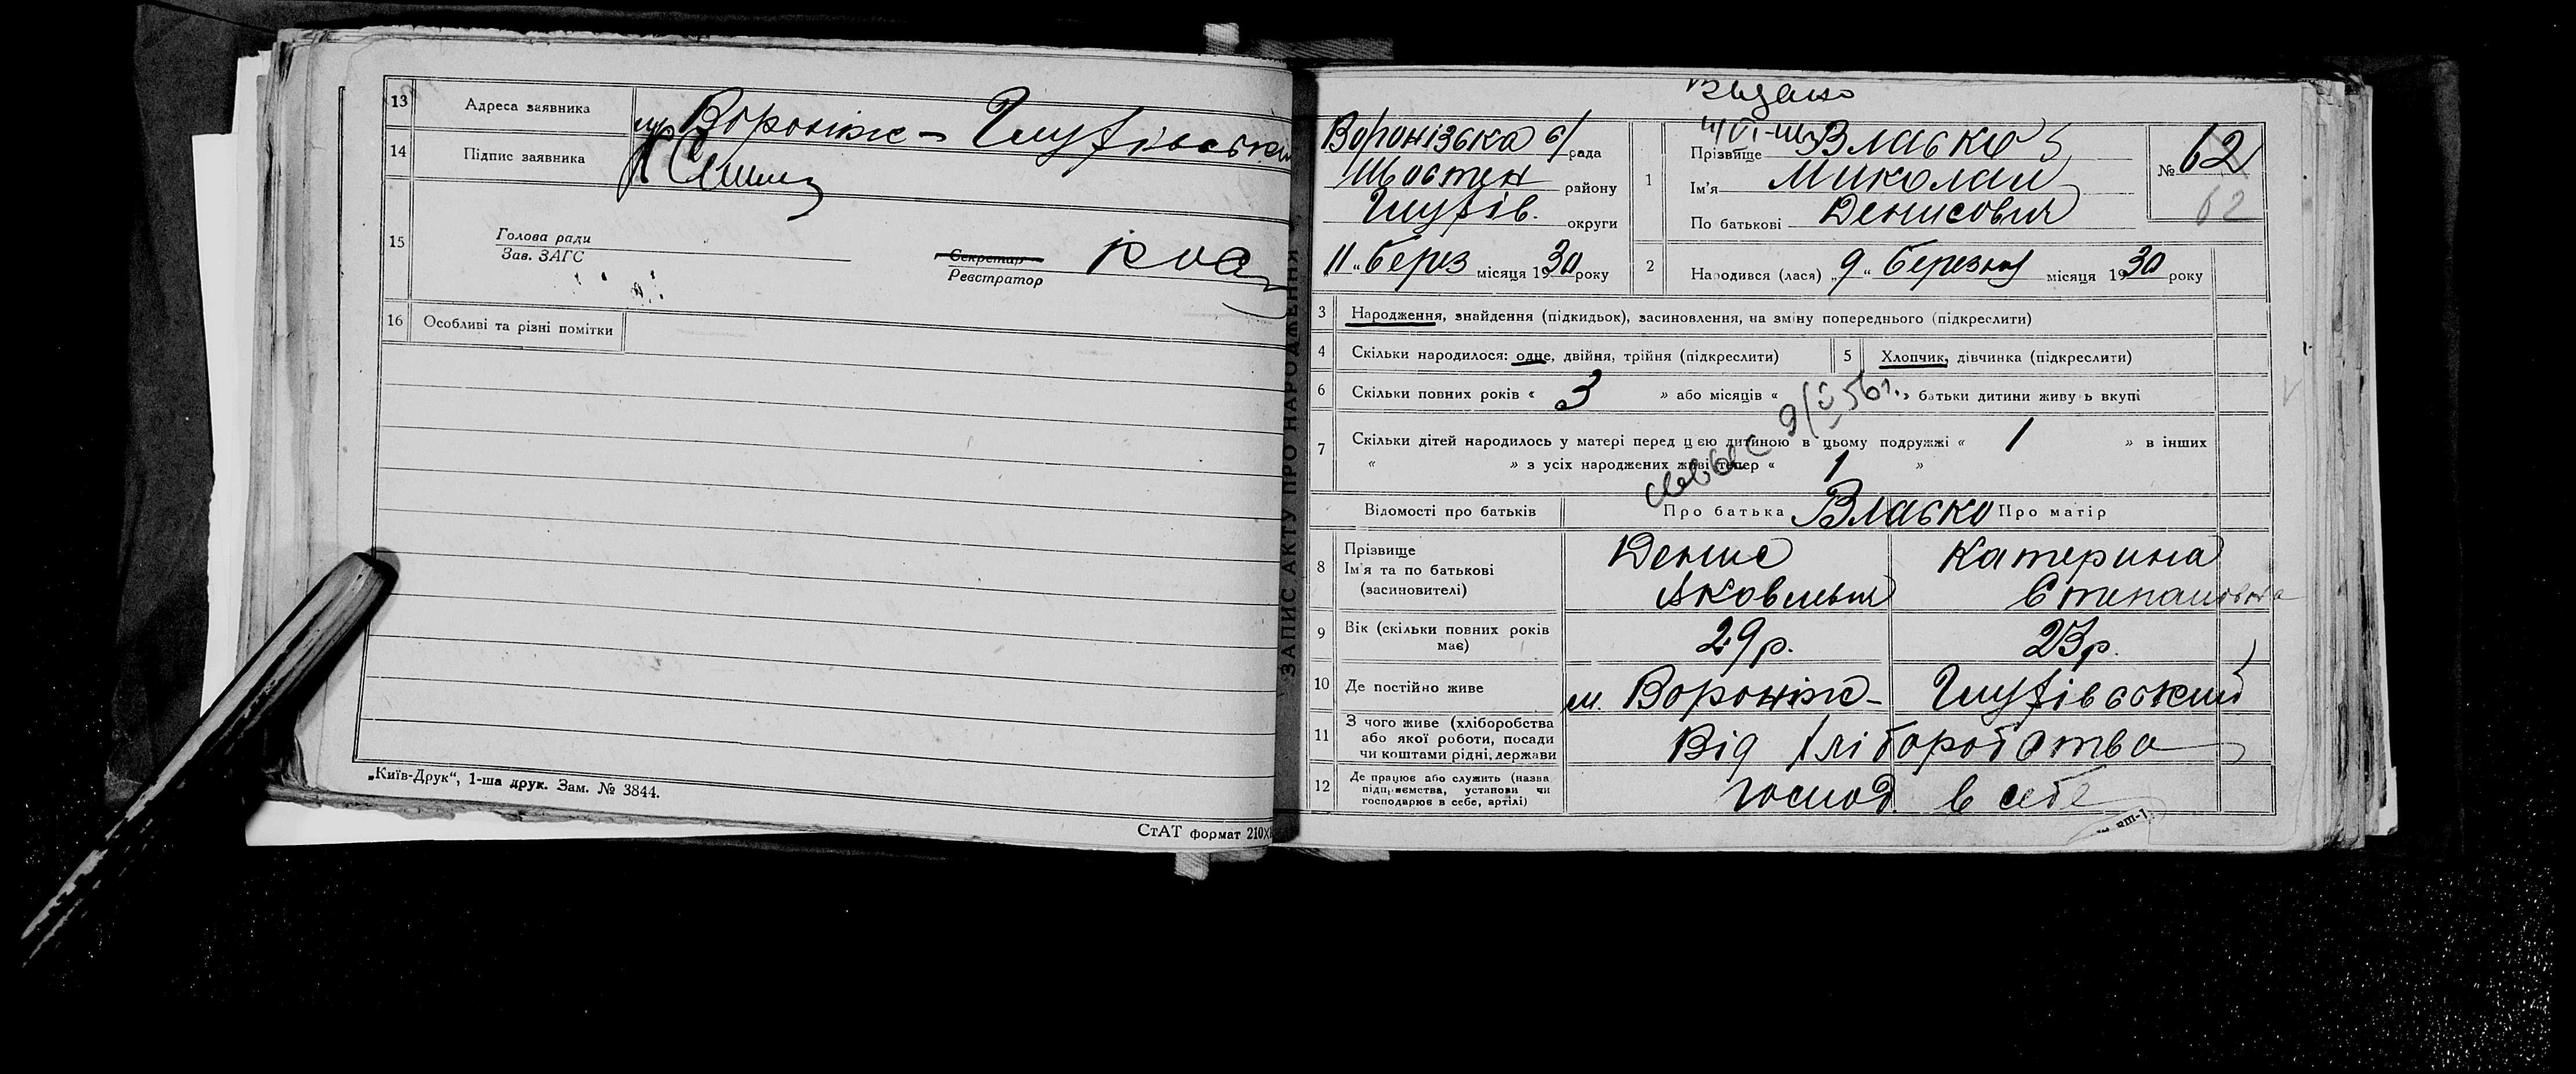 13 Адреса заявника м. Вороніж - Глухівський
14 Підпис заявника
15 Голова ради
Зав. ЗАГС
Секретар
Реєстратор
16 Особливі та різні помітки
„Київ-Друк“, 1-ша друк. Зам. № 3844.
СтАТ формат 210
ЗАПИС АКТУ ПРО НАРОДЖЕННЯ
Видано
Воронізька с/рада
Шостен району
Глухів. округи
11 „ берез місяця 1930 року
1 Прізвище Власко
Ім'я Миколай
По батькові Денисович
№ 62
62
2 Народився (лася) „ 9 “ березня місяця 1930 року
3 Народження, знайдення (підкидьок), засиновлення, на зміну попереднього (підкреслити)
4 Скільки народилося: одне, двійня, трійня (підкреслити) 5 Хлопчик, дівчинка (підкреслити)
6 Скільки повних років « 3 » або місяців « » батьки дитини живу ь вкупі
9/V 56г.
7 Скільки дітей народилось у матері перед цією дитиною в цьому подружжі « 1 » в інших
« » з усіх народжених живі тепер « 1 »
Відомості про батьків Про батька Власко Про матір
8 Прізвище
Ім'я та по батькові
(засиновителі)
Денис
Яковлевич
Катерина
Степановна
9 Вік (скільки повних років
має)
29р. 23р.
10 Де постійно живе м. Вороніж - Глухівський
11 З чого живе (хліборобства
або якої роботи, посади
чи коштами рідні, держави
Від хліборобства
12 Де працює або служить (назва
підприємства, установи чи
господарює в себе, артілі)
господ. в себе